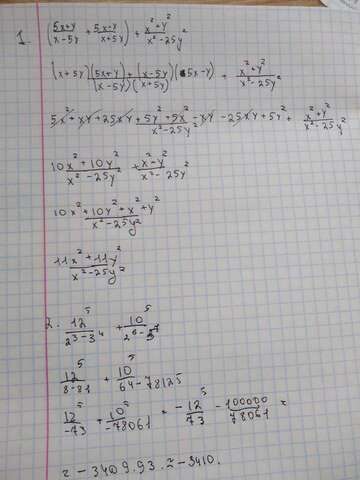 1. (5x+y/x-5y + 5x-y/x+5y) + x²+y²/x²-25y²
(x+5y)(5x+y)+(x-5y)(5x-y)/(x-5y)(x+5y) + x²+y²/x²-25y²
5x²+xy+25xy+5y²+5x²-xy-25xy+5y²/x²-25y² + x²+y²/x²-25y²
10x²+10y²/x²-25y² + x²-y²/x²-25y²
10x²+10y²+x²+y²/x²-25y²
11x²+11y²/x²-25y²
2. 12⁵/2³-3⁴ + 10⁵/2⁶-5⁷
12⁵/8-81 + 10⁵/64-78125
12⁵/-73 + 10⁵/-78061 = -12⁵/73 - 100000/78061 =
= -3409.93 ≈ -3410.